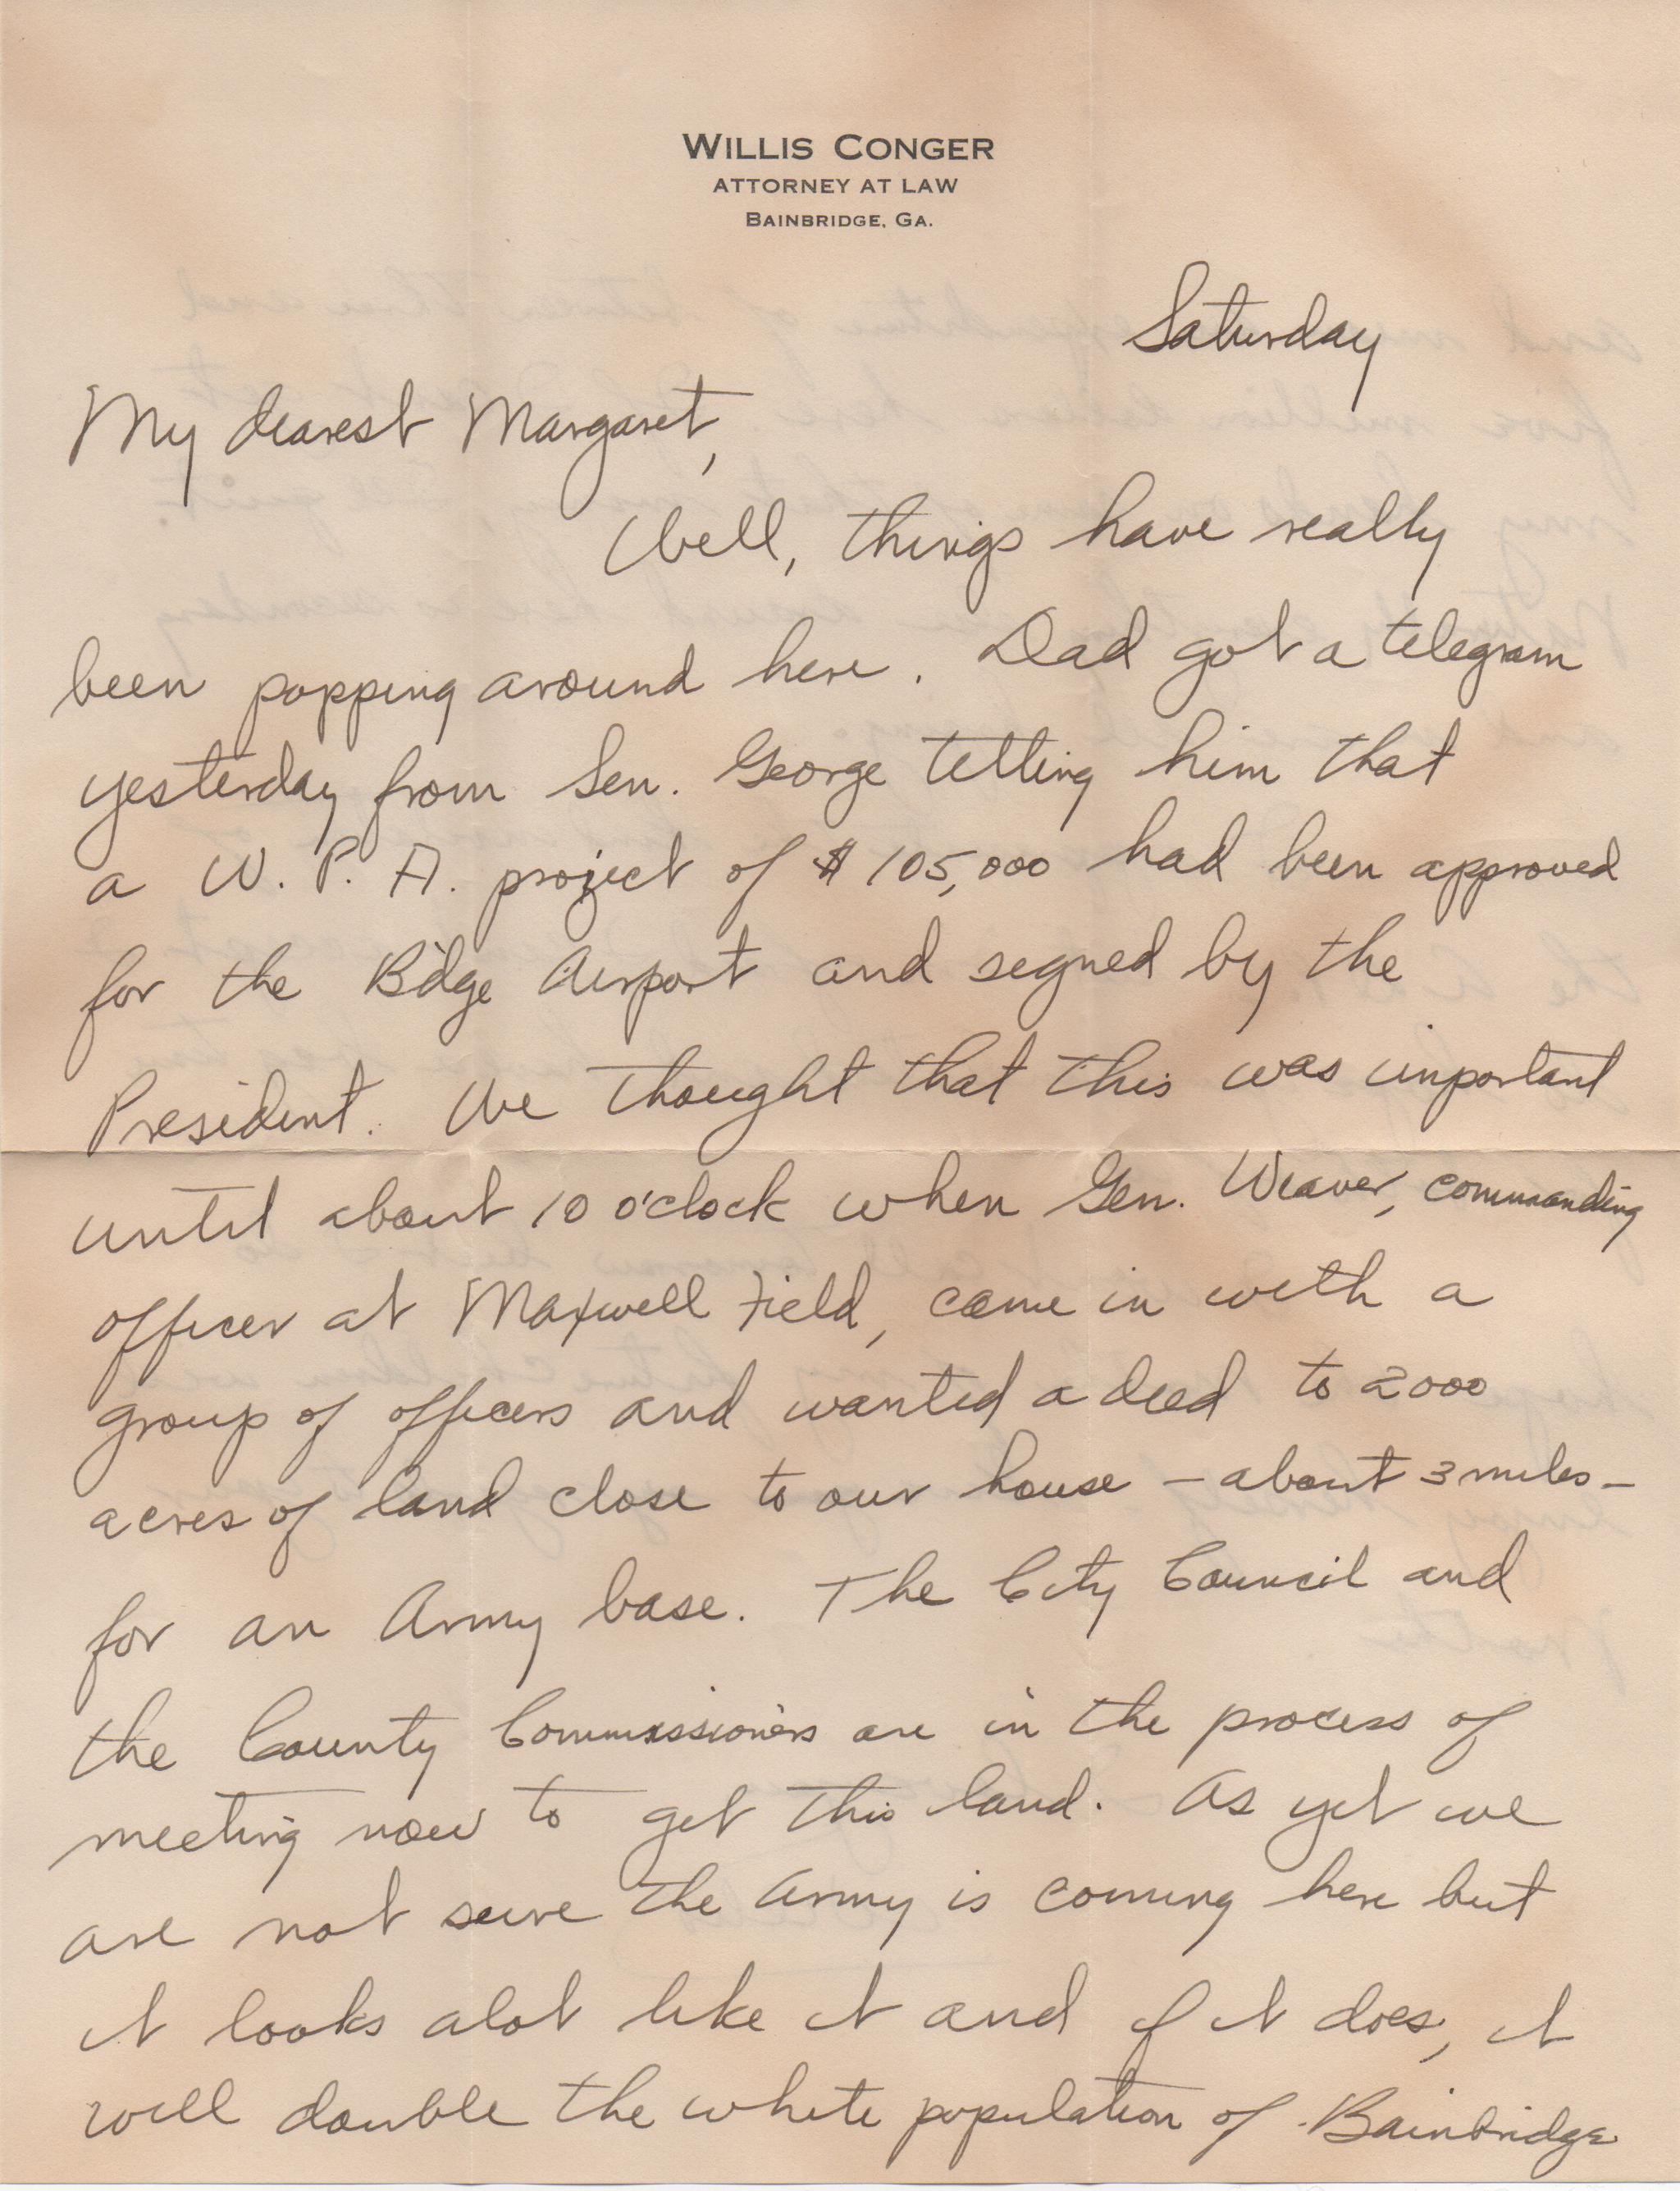 WILLIS CONGER
ATTORNEY AT LAW
BAINBRIDGE, GA.
Saturday
My dearest Margaret,
Well, things have really
been popping around here. Dad got a telegram
yesterday from Sen. George telling him that
a W. P. A. project of $105,000 had been approved
for the B'dge Airport and signed by the
President. We thought that this was important
until about 10 o'clock when Gen. Weaver, commanding
officer at Maxwell Field, came in with a
group of officers and wanted a deed to 2000
acres of land close to our house - about 3 miles -
for an Army base. The City Council and
the County Commissioners are in the process of
meeting now to get this land. As yet we
are not sure the Army is coming here but
it looks alot like it and if it does, it
will double the white population of Bainbridge